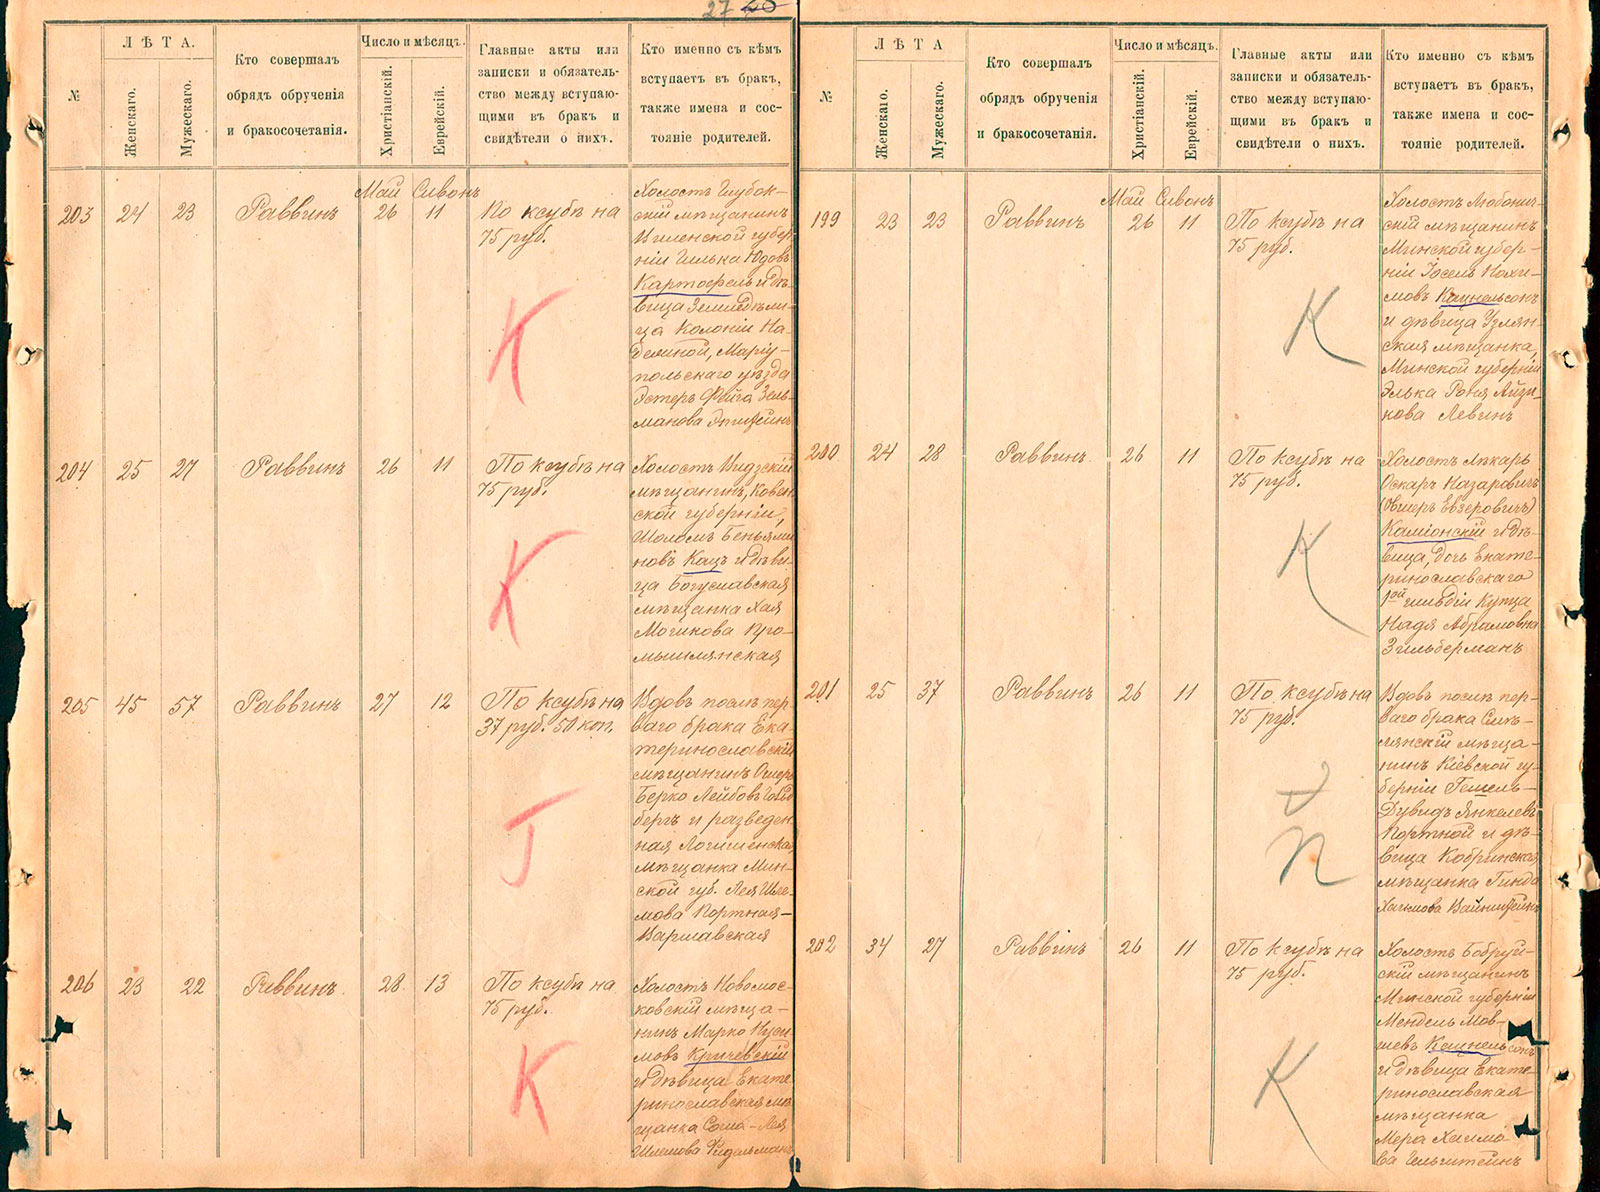 27 26
№
ЛѢТА.
Женскаго.
Мужескаго.
Кто совершалъ
обрядъ обрученія
и бракосочетанія.
Число и мѣсяцъ.
Христіанскій.
Еврейскій.
Главные акты или
записки и обязатель-
ство между вступаю-
щими въ бракъ и
свидѣтели о нихъ.
Кто именно съ кѣмъ
вступаетъ въ бракъ,
также имена и сос-
тояніе родителей.
Май Сивонъ
203 24 23 Раввинъ 26 11 По ксубѣ на
75 руб.
К
Холостъ Глубок-
скій мѣщанинъ
Виленской губер
ніи Гилька Юдовъ
Картофель и дѣ
вица Земледѣли
ца Колоніи На
дежной, Маріу-
польскаго уѣзда
Эстеръ Фейга Зель
манова
204 25 27 Раввинъ 26 11 По ксубѣ на
75 руб.
К
Холостъ Видзскій
мѣщанинъ, Ковен
ской губерніи,
Шоломъ Беньями
новъ Кацъ и дѣви
ца Богуславская
мѣщанка Хая
Мошкова Про-
мышлянская
205 45 57 Раввинъ 27 12 По ксубѣ на
37 руб. 50 коп.
Г
Вдовъ послѣ пер
ваго брака Ека-
теринославскій
мѣщанинъ Ошеръ
Берко Лейбовъ Гольд
бергъ и разведен
ная Логишенская
мѣщанка Мин-
ской губ. Лея Шле
мова Портная-
Варшавская
206 23 22 Раввинъ. 28 13 По ксубѣ на
75 руб.
К
Холостъ Новомос-
ковскій мѣща-
нинъ Марко Нуси
мовъ Кричевскій
и дѣвица Екате
ринославская мѣ
щанка Соша-Лея
Шлемова Фидельманъ
№
ЛѢТА
Женскаго.
Мужескаго.
Кто совершалъ
обрядъ обрученія
и бракосочетанія.
Число и мѣсяцъ.
Христіанскій.
Еврейскій.
Главные акты или
записки и обязатель-
ство между вступаю-
щими въ бракъ и
свидѣтели о нихъ.
Кто именно съ кѣмъ
вступаетъ въ бракъ,
также имена и сос-
тояніе родителей.
Май Сивонъ
199 23 23 Раввинъ 26 11 По ксубѣ на
75 руб.
К
Холостъ Любонич-
скій мѣщанинъ
Минской губер-
ніи Іосель Нохи-
мовъ Кацнельсонъ
и дѣвица Узлян-
ская мѣщанка,
Минской губерніи
Элька Роня Айзи
кова Левинъ
200 24 28 Раввинъ. 26 11 По ксубѣ на
75 руб.
К
Холостъ лѣкарь
Оскаръ Назаровичъ
(Ошеръ Евзеровичъ)
Каміонскій и дѣ-
вица, дочь Екате-
ринославскаго
1ой гильдіи Купца
Надя Абрамовна
Зильберманъ
201 25 37 Раввинъ 26 11 По ксубѣ на
75 руб.
П
Вдовъ послѣ пер-
ваго брака Смѣ-
лянскій мѣща-
нинъ Кіевской гу-
берніи Гешель-
Дувидъ Янкелевъ
Портной и дѣ-
вица Кобринская
мѣщанка Гинда
Хаимова Вайнштейнъ
202 34 27 Раввинъ 26 11 По ксубѣ на
75 руб.
К
Холостъ Бобруй-
скій мѣщанинъ
Минской губерніи
Мендель Мов-
шевъ Кацнельсонъ
и дѣвица Екате-
ринославская
мѣщанка
Мера Хаимо-
ва Гельштейнъ